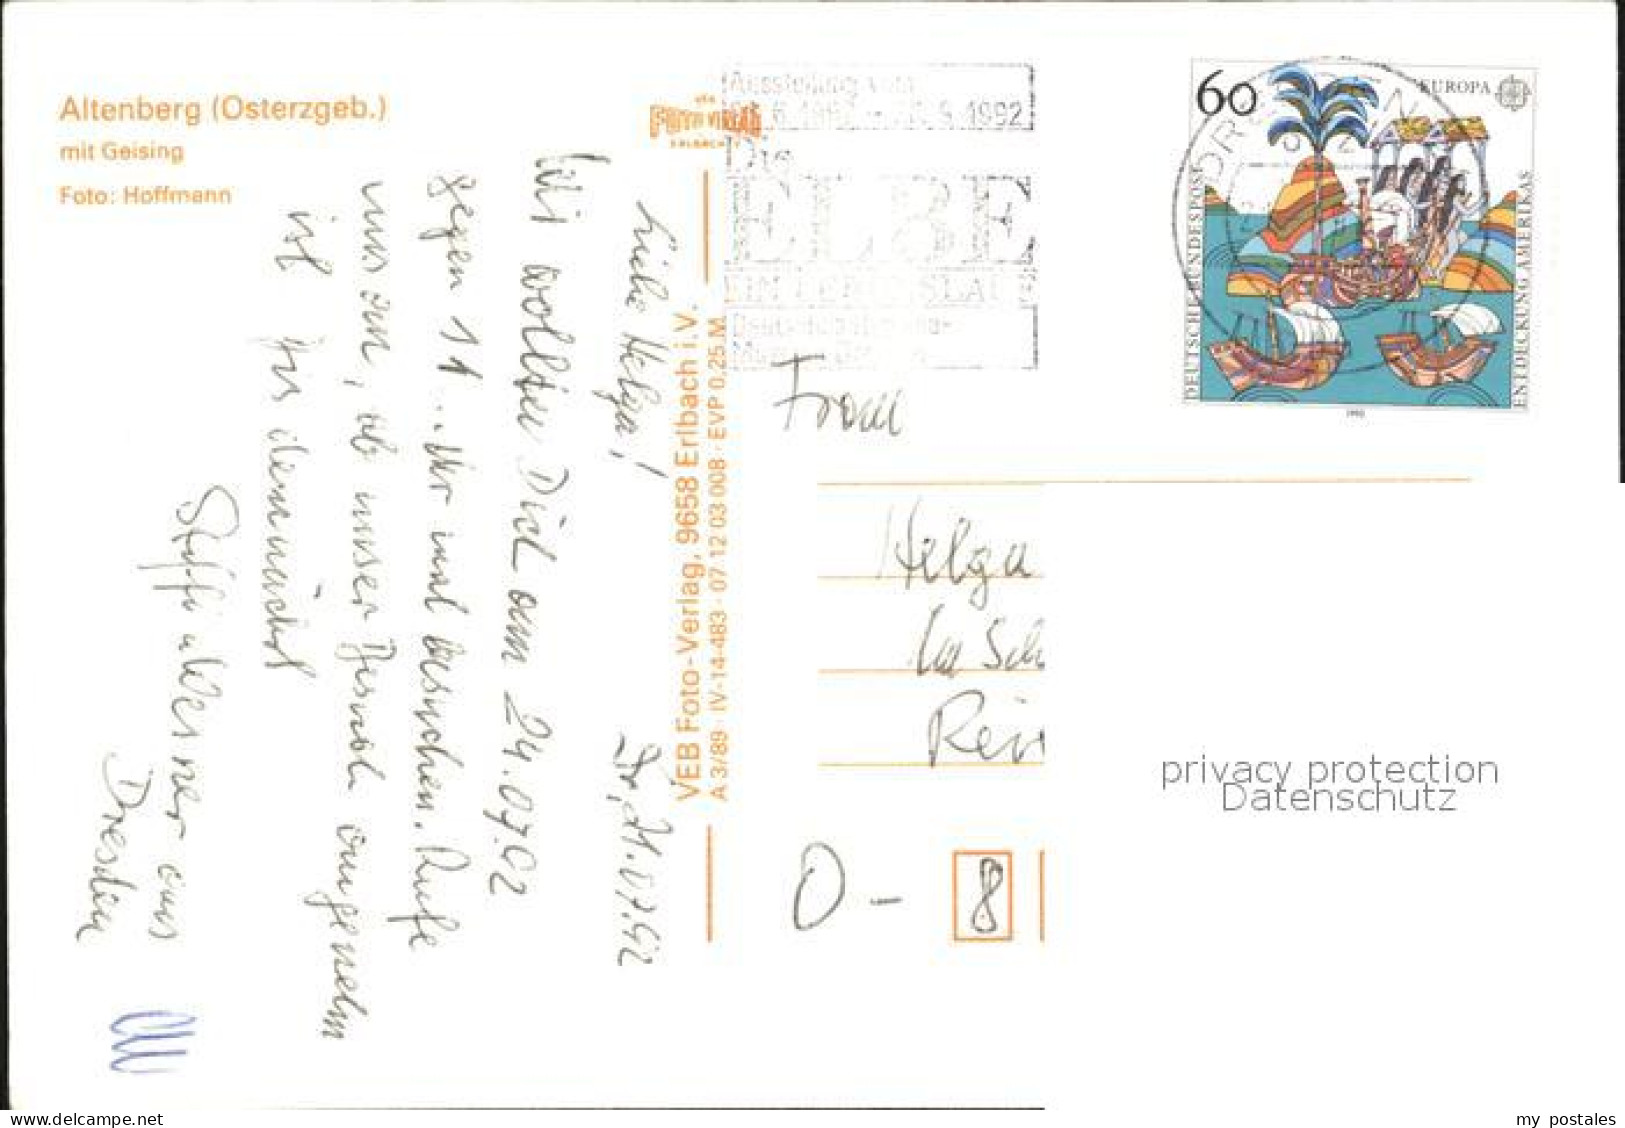 Altenberg (Osterzgeb.)
mit Geising
Foto: Hoffmann
FOTO VERLAG
ERLBACH
VEB Foto-Verlag, 9658 Erlbach i. V.
A 3/89 · IV-14-483 · 07 12 03 008 · EVP 0,25 M
Dr, 21.07.92
Liebe Helga!
Wir wollten Dich am 24.07.92
gegen 11.. Uhr mal besuchen. Rufe
uns an, ob unser Besuch angenehm
ist. Bis demnächst
Steffi u Werner aus
Dresden
Ausstellung vom
6.1992 - 9.1992
Die
ELBE
EIN LEBENSLAUF
60
EUROPA
DEUTSCHE BUNDESPOST
ENTDECKUNG AMERIKAS
1992
Frau
Helga
Im Sch
Rein
O - 8
privacy protection
Datenschutz
Delcampe.net
my_postales